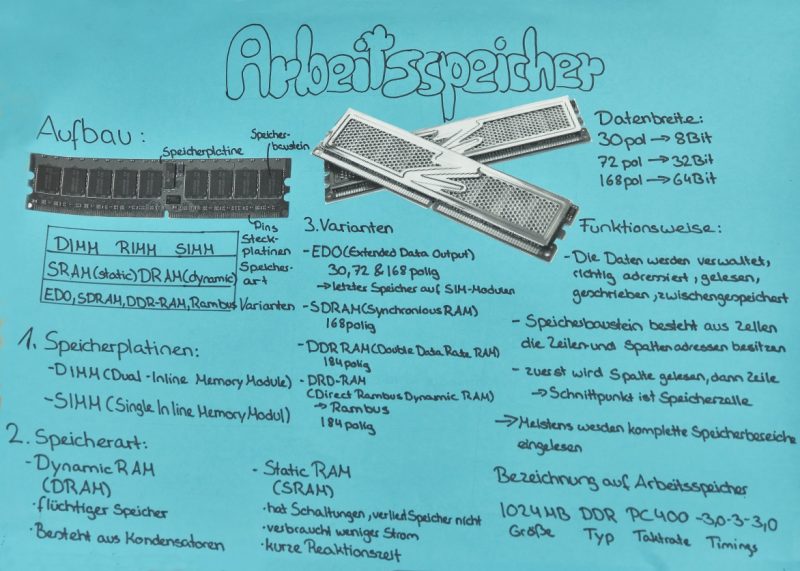 Arbeitsspeicher
Aufbau:
Speicherplatine
Speicher-
baustein
Pins
DIMM RIMM SIMM
Steck-
platinen
SRAM(static) DRAM(dynamic)
Speicher-
art
EDO, SDRAM, DDR-RAM, Rambus
Varianten
1. Speicherplatinen:
-DIMM (Dual-Inline Memory Module)
-SIMM (Single Inline Memory Modul)
2. Speicherart:
-Dynamic RAM
(DRAM)
·flüchtiger Speicher
·Besteht aus Kondensatoren
- Static RAM
(SRAM)
·hat Schaltungen, verliert Speicher nicht
·verbraucht weniger Strom
·kurze Reaktionszeit
3. Varianten
-EDO (Extended Data Output)
30, 72 & 168 polig
→ letzter Speicher auf SIM-Modulen
-SDRAM (Synchronious RAM)
168 polig
-DDR RAM (Double Data Rate RAM)
184 polig
-DRD-RAM
(Direct Rambus Dynamic RAM)
→ Rambus
184 polig
Datenbreite:
30pol → 8Bit
72 pol → 32Bit
168pol → 64Bit
Funktionsweise:
-Die Daten werden verwaltet,
richtig adressiert, gelesen,
geschrieben, zwischengespeichert
- Speicherbaustein besteht aus Zellen
die Zeilen- und Spaltenadressen besitzen
- zuerst wird Spalte gelesen, dann Zeile
→ Schnittpunkt ist Speicherzelle
→ Meistens werden komplette Speicherbereiche
eingelesen
Bezeichnung auf Arbeitsspeicher
1024MB DDR PC400 -3,0-3-3,0
Größe Typ Taktrate Timings